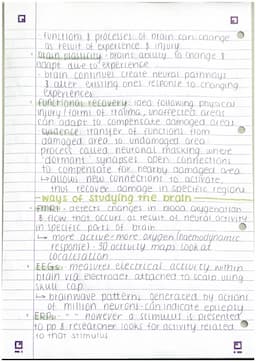 functions & processes of brain can change
as result of experience & injury
• brain plasticity - brains ability to change &
adapt due to experience
- brain continues create neural pathways
& alter existing ones response to changing
experiences
• functional recovery: idea following physical
injury/forms of trauma, unaffected areas
can adapt to compensate damaged areas
evidence: transfer of functions from
damaged area to undamaged area
process called neuronal masking where
'dormant' synapses open connections
to compensate for nearby damaged area
↳ allows new connections to activate,
thus recover damage in specific regions
-ways of studying the brain-
- FMRI- detects changes in blood oxygenation
& flow that occurs as result of neural activity
in specific parts of brain
↳ more active = more oxygen (haemodynamic
response) - 3D activity maps look at
localisation
• EEGs- measures electrical activity within
brain via electrodes attached to scalp using
skull cap
↳ brainwave patterns generated by actions
of million neurons - can indicate epilepsy
• ERPs- - - however a stimulus is presented
to pp & researcher looks for activity related
to that stimulus